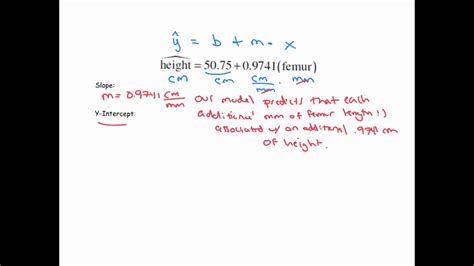 ŷ = b + m · x
height = 50.75 + 0.9741(femur)
cm cm cm/mm · mm
Slope:
m = 0.9741 cm/mm our model predicts that each
additional mm of femur length is
associated w/ an additional .9741 cm
of height.
Y-Intercept: